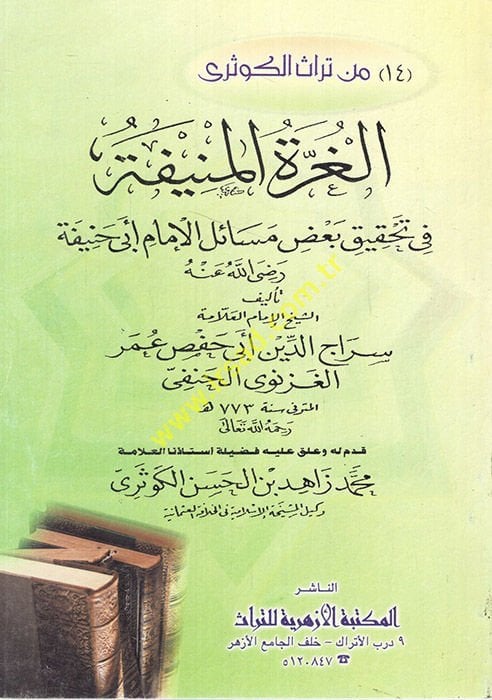 (١٤) من تراث الكوثرى
الغُرَّة المُنِيفَة
فِي تَحْقِيقِ بَعْضِ مَسَائِلِ الإِمَامِ أَبِي حَنِيفَة
رَضِيَ اللهُ عَنْهُ
تأليف
الشيخ الإمام العلامة
سِرَاجِ الدِّينِ أَبِي حَفْصٍ عُمَرَ
الغَزْنَوِى الحَنَفِى
المتوفى سنة ٧٧٣ هـ
رَحِمَهُ اللهُ تَعَالَى
قدم له وعلق عليه فضيلة أستاذنا العلامة
مُحَمَّد زَاهِد بْنِ الحَسَنِ الكَوْثَرِى
وكيل المشيخة الإسلامية فى الخلافة العثمانية
الناشر
المكتبة الأزهرية للتراث
٩ درب الأتراك - خلف الجامع الأزهر
☎ ٥١٢٠٨٤٧